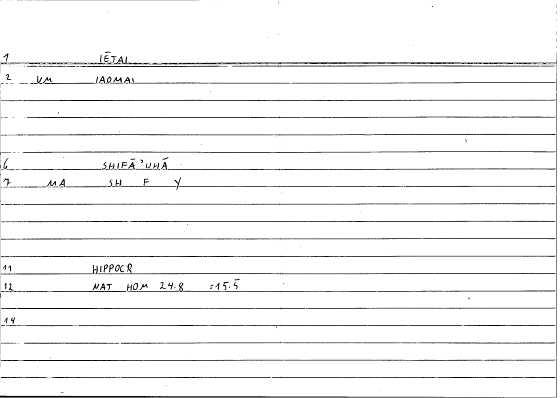 1 IĒTAI
2 VM IAOMAI
6 SHIFĀ'UHĀ
7 MA SH F Y
11 HIPPOCR
12 NAT HOM 24.8 =15.5
14